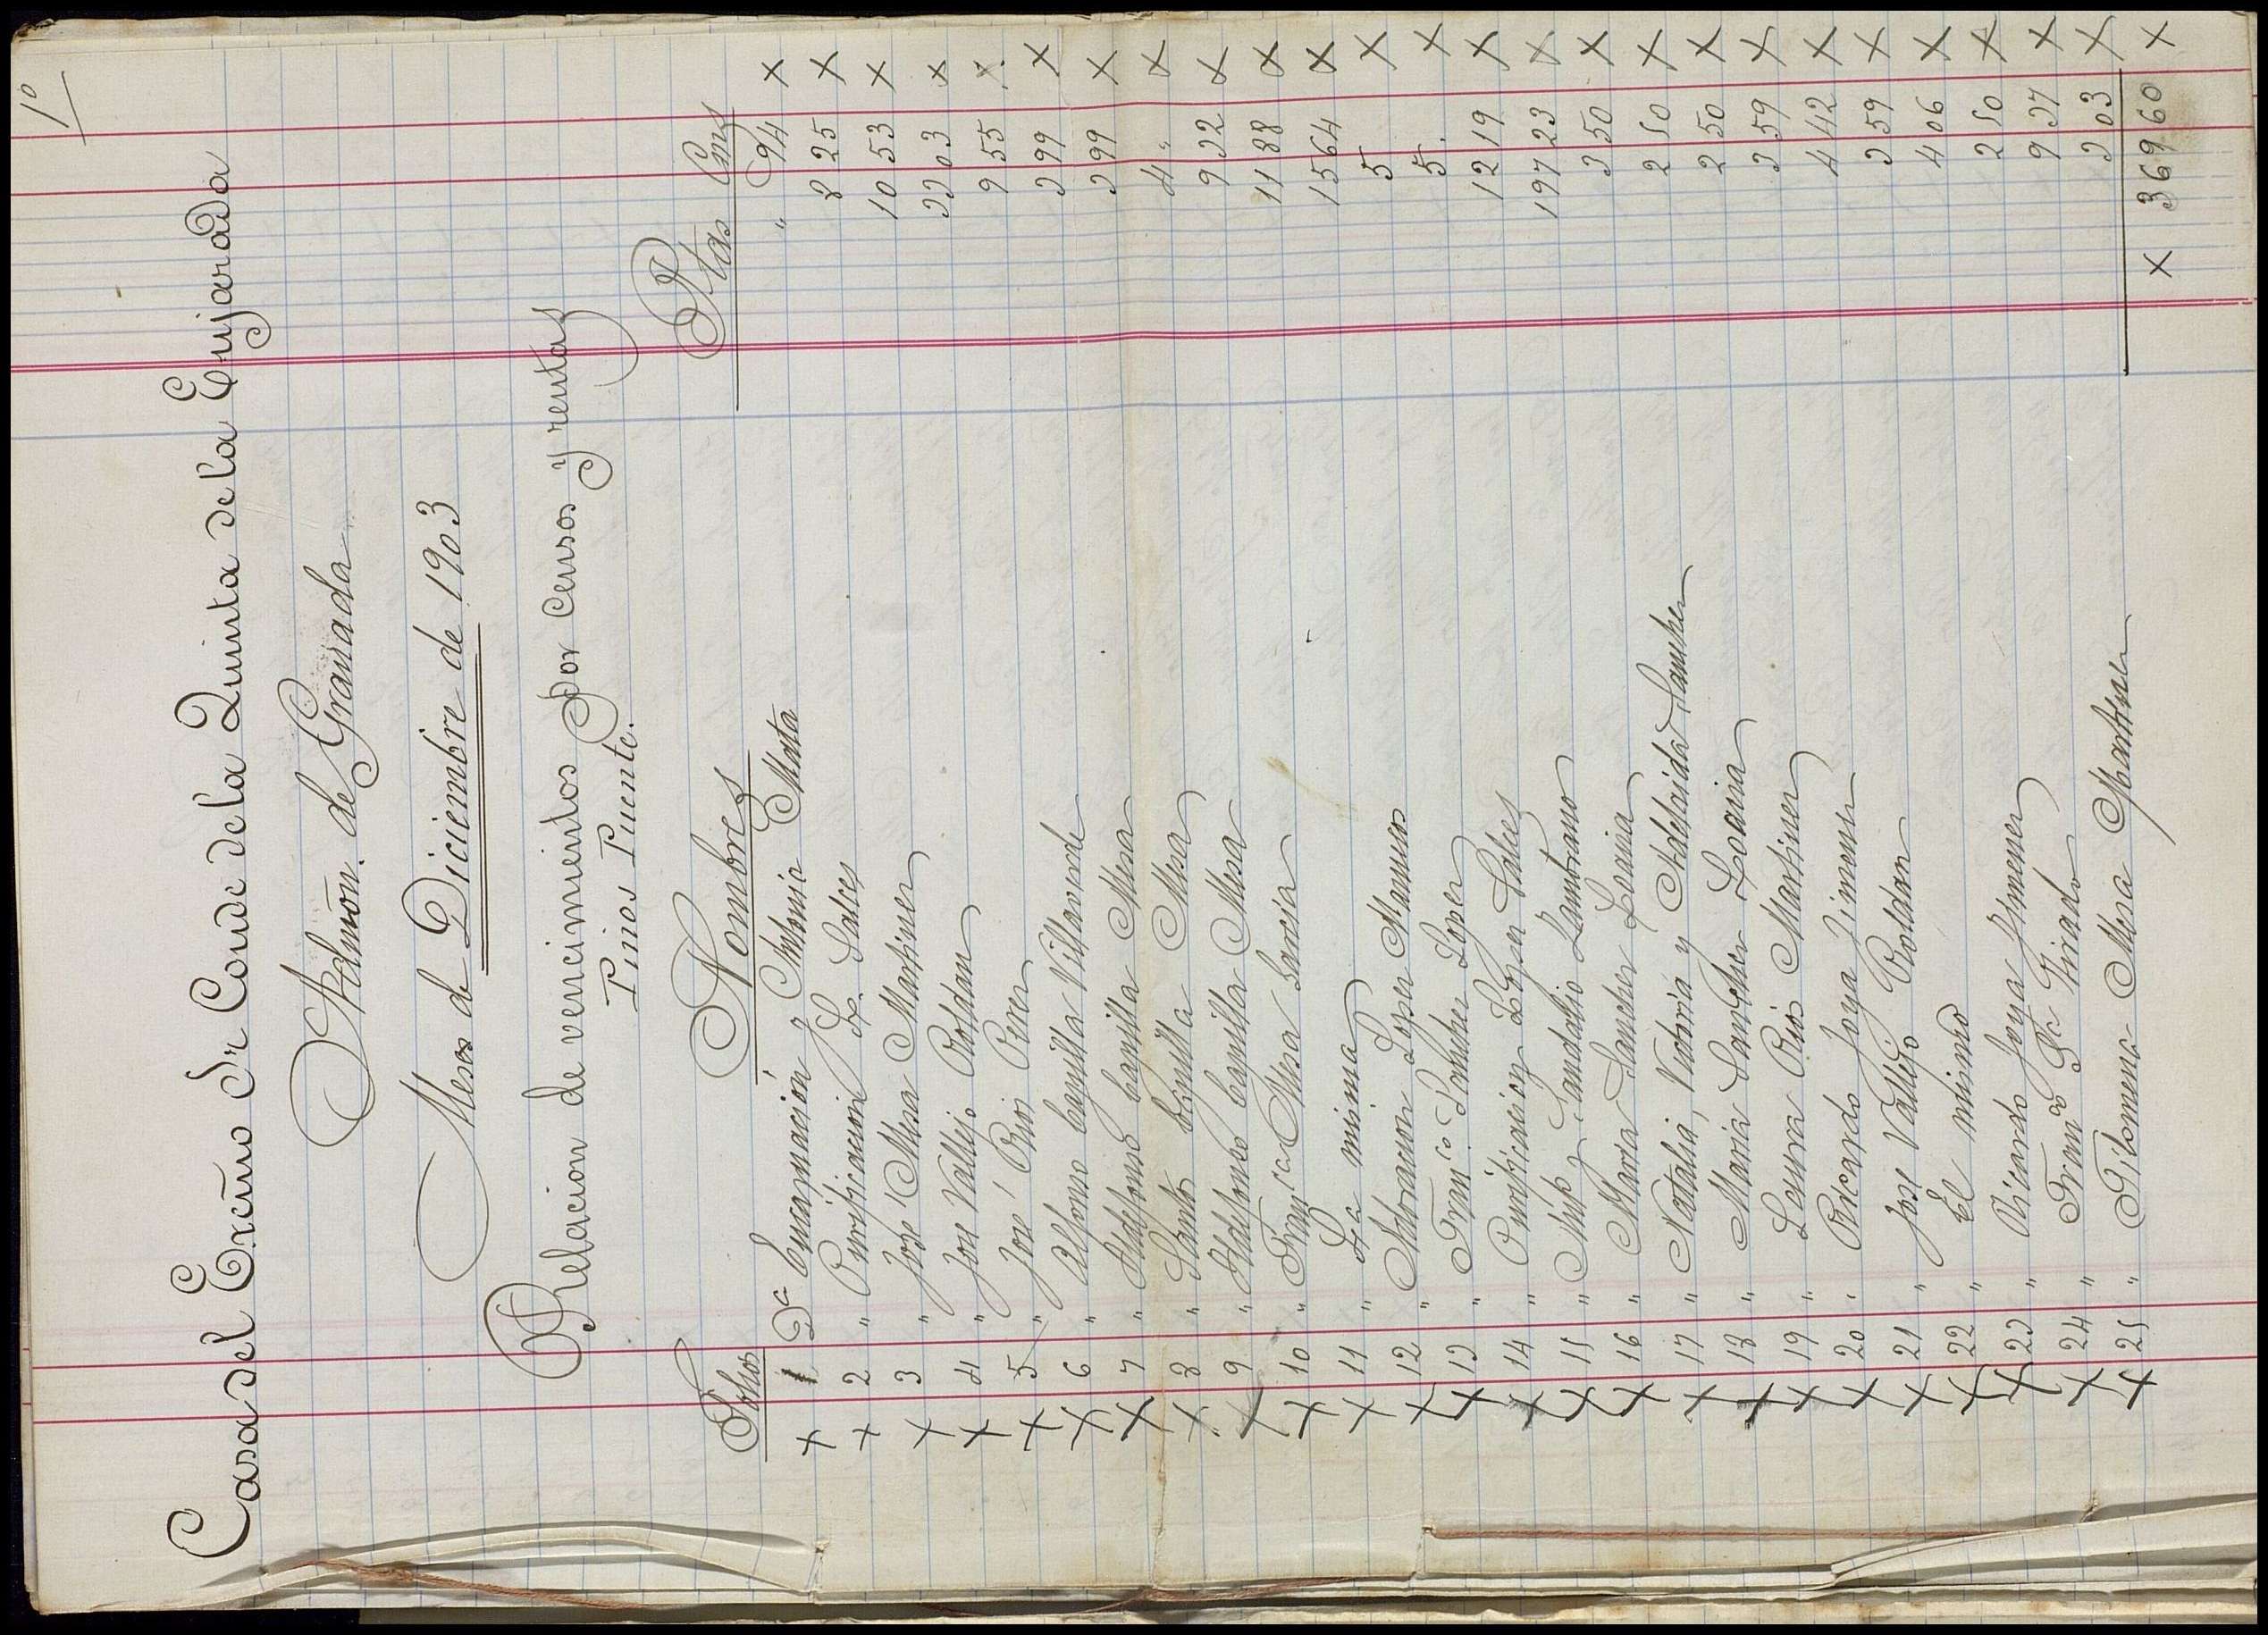 1º
Casa del Excmo Sr Conde de la Quinta de la Enjarada
Admón. de Granada
Meses de Diciembre de 1903
Relacion de vencimientos por censos y rentas
Pinos Puente.
Folios Nombres Ptas Cms
x 1 Dª Encarnación y Antonia Mata " 94 x
x 2 " Purificacion L. Salces 8 25 x
x 3 " José Mesa Martinez 10 53 x
x 4 " José Vallejo Roldan 33 03 x
x 5 " José Rios Perez 9 55 x
x 6 " Alfonso Capilla Villaverde 3 99 x
x 7 " Ildefonso Capilla Mesa 3 99 x
x 8 " Santos Capilla Mesa 4 " x
x 9 " Ildefonso Capilla Mesa 9 32 x
x 10 " Franca Mesa Garcia 11 88 x
x 11 " La misma 15 64 x
x 12 " Adoracion Lopez Ramos 5 x
x 13 " Franco Lopez 5 . x
x 14 " Purificacion Lopez Salces 12 19 x
x 15 " y Zambrano 197 23 x
x 16 " Maria Sanchez Loaisa 3 50 x
x 17 " Natalia, Victoria y Adelaida Sanchez 2 50 x
x 18 " Maria Sanchez Loaisa 2 50 x
x 19 " Laura Rios Martinez 3 59 x
x 20 " Ricardo Joya Jimenez 4 42 x
x 21 " José Vallejo Roldan 3 59 x
x 22 " El mismo 4 06 x
x 23 " Ricardo Joya Jimenez 2 50 x
x 24 " Franco Gª Tirado 9 37 x
x 25 " Filomena Mesa Martinez 3 03 x
x 369 60 x